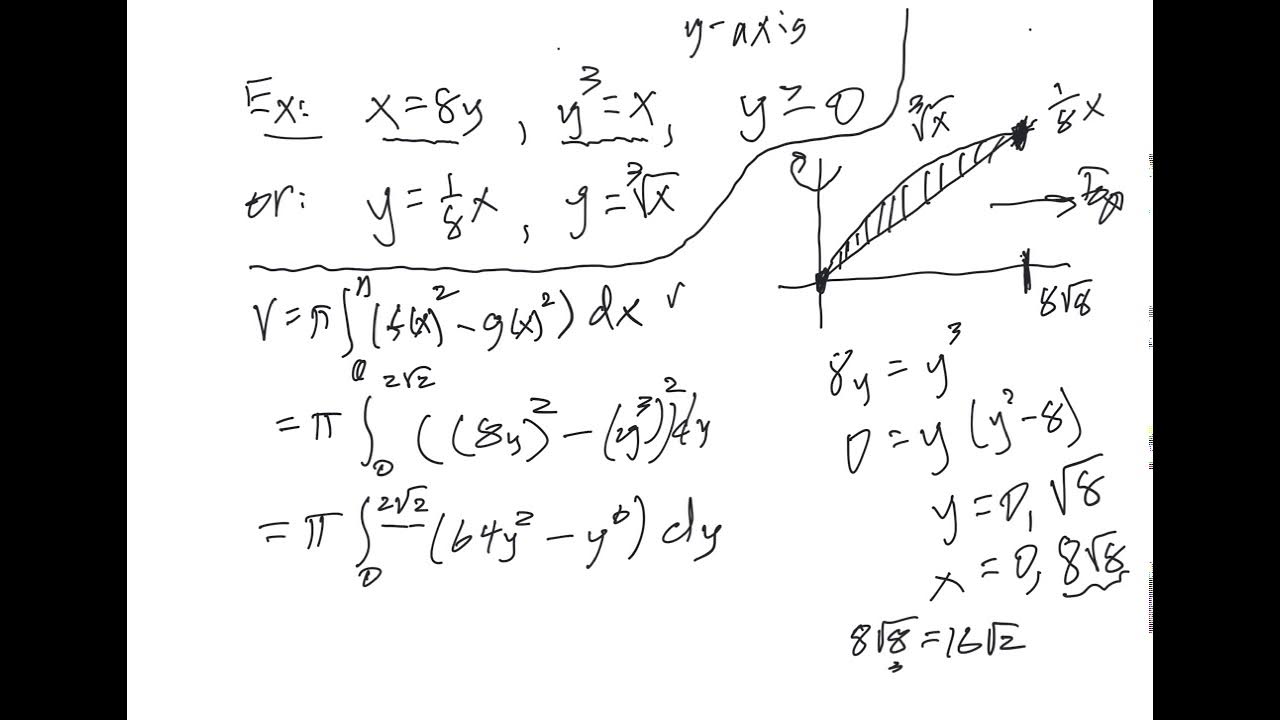 y-axis
Ex: x = 8y , y³ = x, y ≥ 0
or: y = 1/8 x , y = ∛x
∛x
1/8 x
8√8
V = π∫ (f(x)² - g(x)²) dx
= π ∫₀^2√2 ((8y)² - (y³)²) dy
= π ∫₀^2√2 (64y² - y⁶) dy
8y = y³
0 = y (y² - 8)
y = 0, √8
x = 0, 8√8
8√8 = 16√2